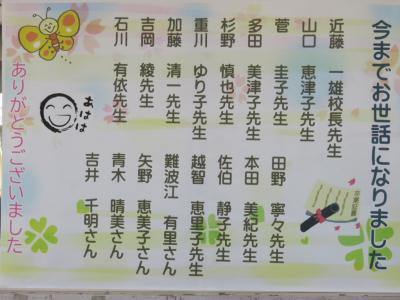 今までお世話になりました
近藤 一雄校長先生
山口 恵津子先生
菅 圭子先生
多田 美津子先生
杉野 慎也先生
重川 ゆり子先生
加藤 清一先生
吉岡 綾先生
石川 有依先生
田野 寧々先生
本田 美紀先生
佐伯 静子先生
越智 恵里子先生
難波江 有里さん
矢野 恵美子さん
青木 晴美さん
吉井 千明さん
卒業証書
あはは
ありがとうございました